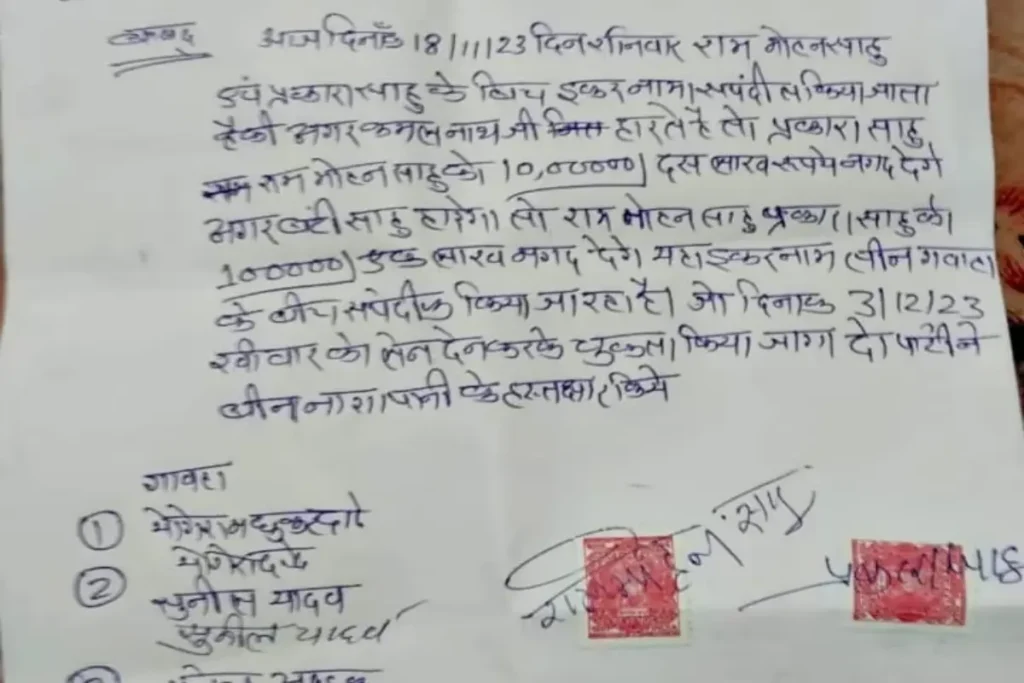 आज दिनाँक 18/11/23 दिन शनिवार राम मोहन साहु
एवं प्रकाश साहु के बिच इकरनामा संपंदीत किया जाता
है की अगर कमलनाथ जी हारते है तो प्रकाश साहु
राम मोहन साहु को 10,00000/ दस लाख रूपये नगद देगे
अगर बंटी साहु हारेगा तो राम मोहन साहु प्रकाश साहु को
100000/ एक लाख नगद देगे। यहा इकरनाम तीन गवाहा
के बीच संपंदीत किया जा रहा है। जो दिनाक 3/12/23
रवीवार को लेन देन करके चुकता किया जागा दो पार्टी ने
बीना नाशा पानी के हस्ताक्षार किये
गावहा
1
2
सुनील यादव
सुनील यादव
राम मोहन साहु
प्रकाश साहु